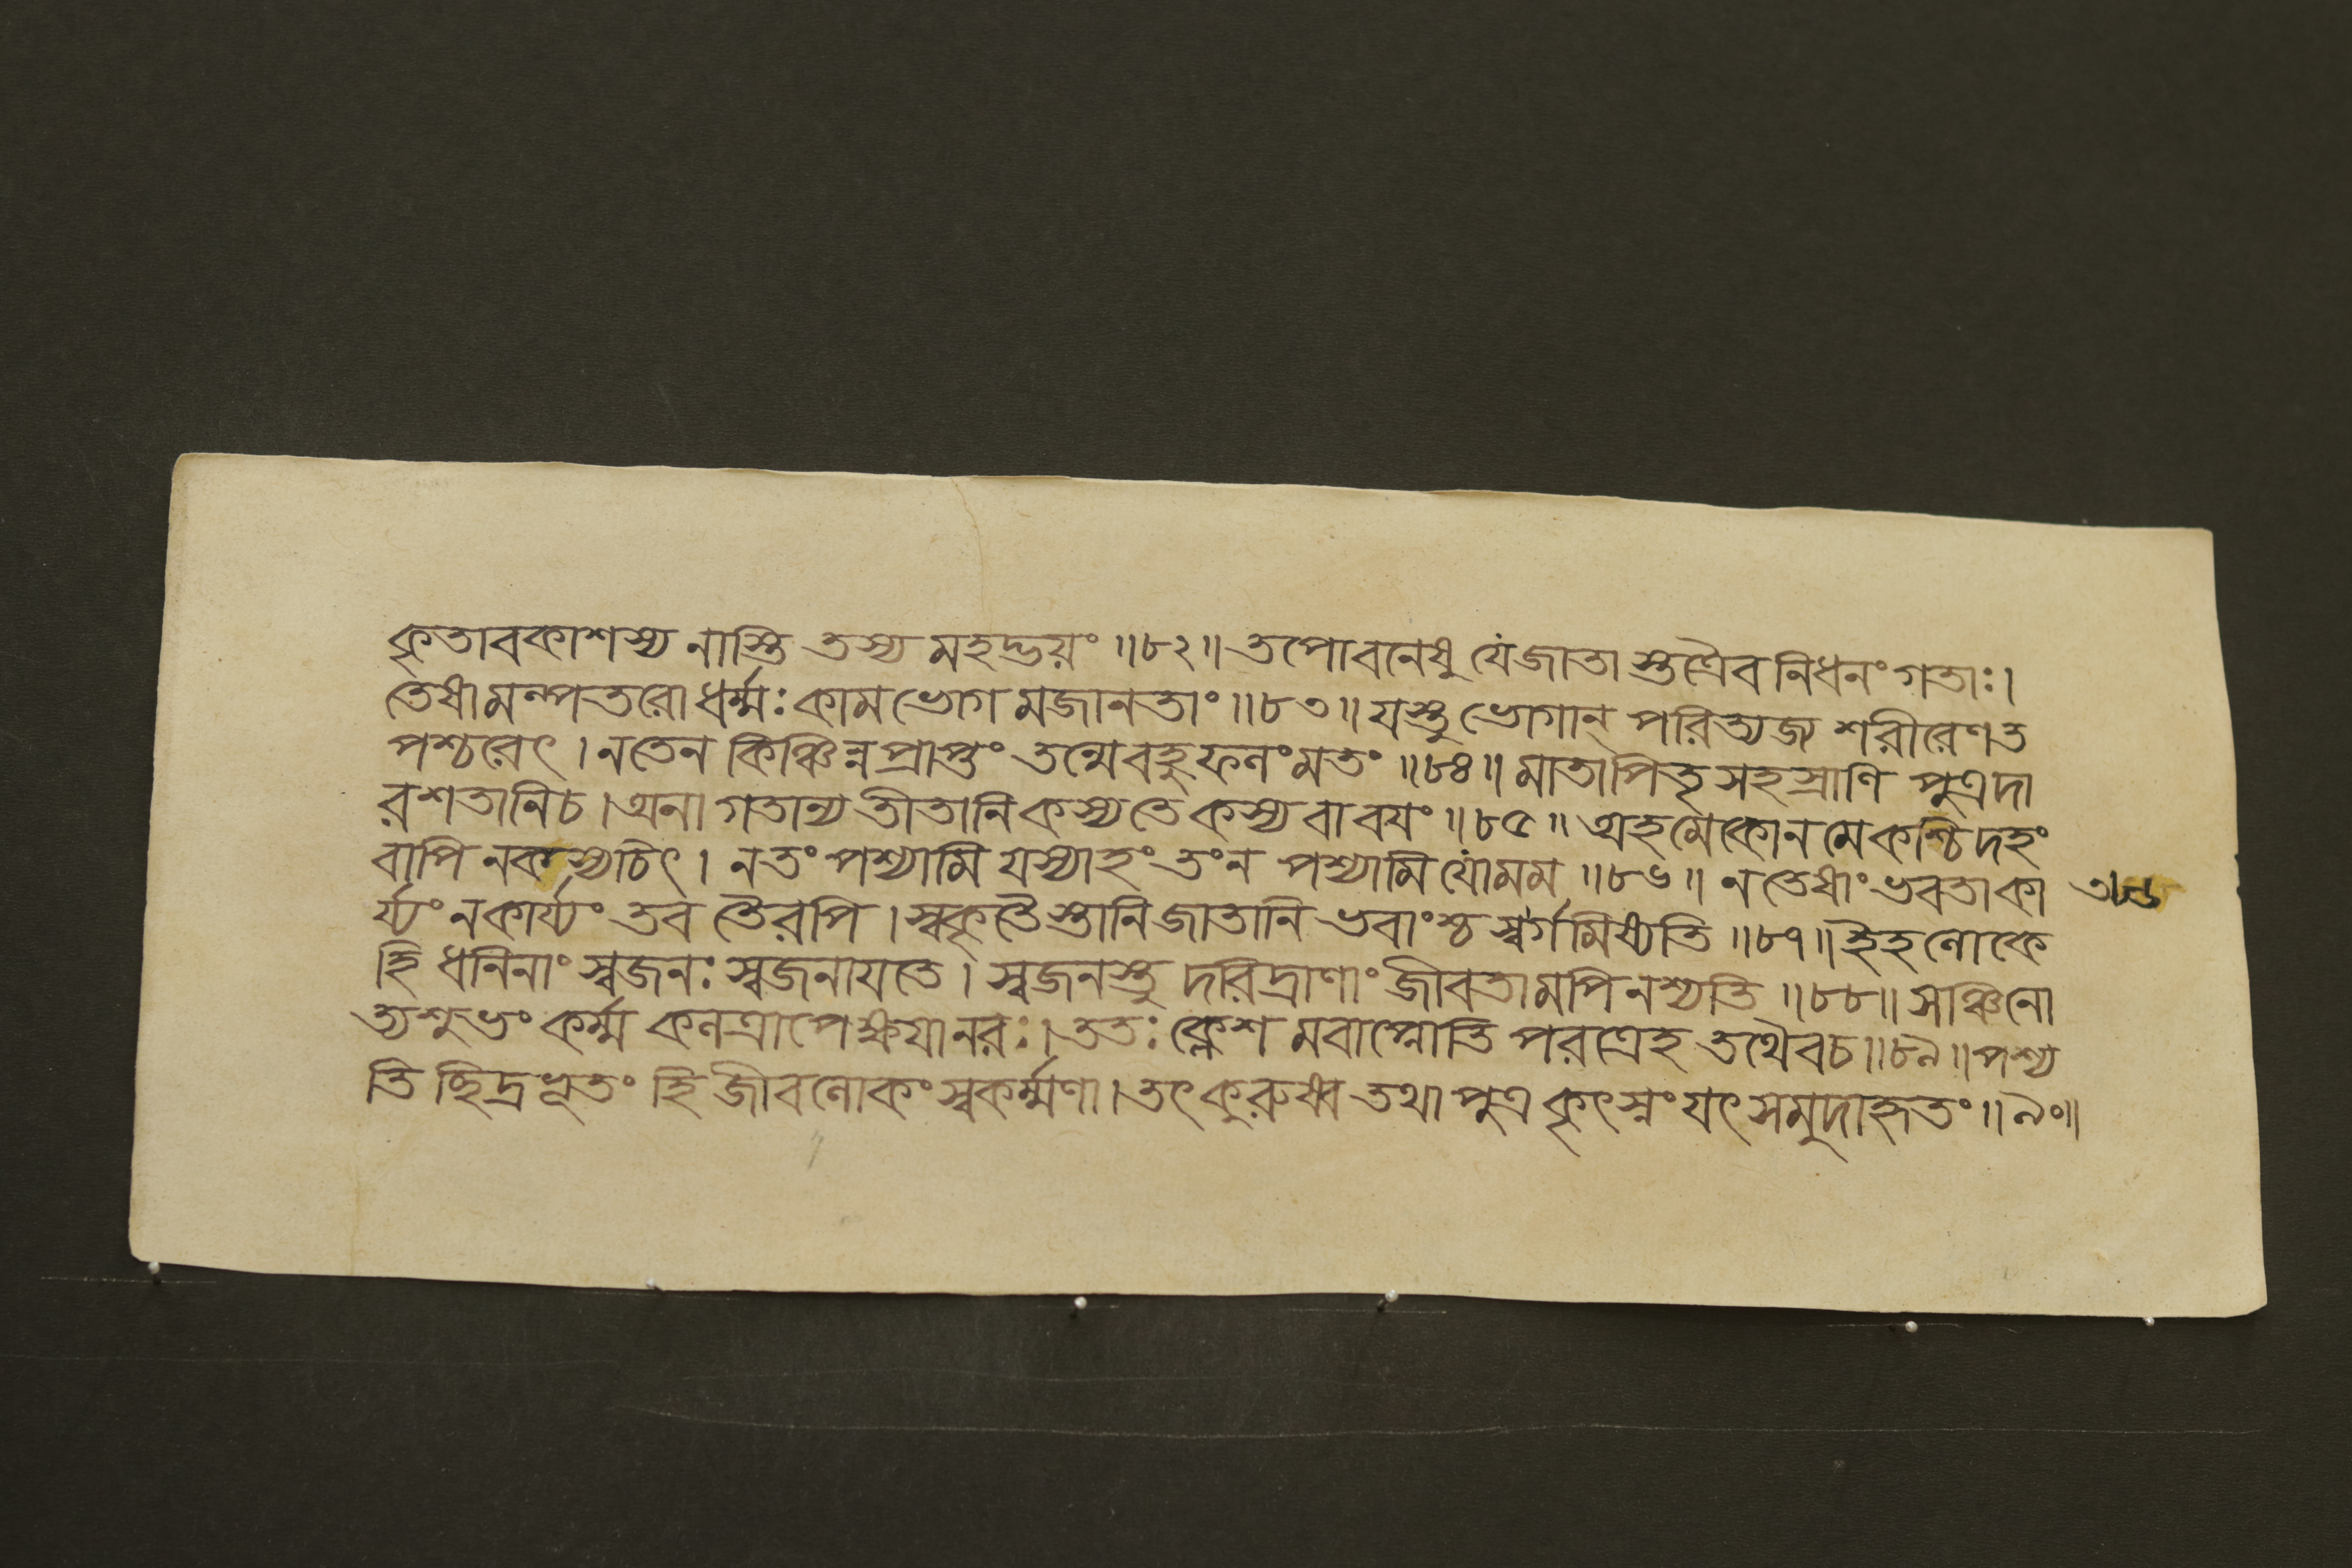 কৃতাবকাশস্য নাস্তি তস্য মহদ্ভয়ং ॥৮২॥ তপোবনেষু যে জাতাস্তত্রৈব নিধনং গতাঃ।
তেষামল্পতরো ধর্ম্মঃ কামভোগমজানতাং ॥৮৩॥ যস্তু ভোগান্ পরিত্যজ্য শরীরেণ ত
পশ্চরেৎ । ন তেন কিঞ্চিন্ন প্রাপ্তং তন্মে বহুফলং মতং ॥৮৪॥ মাতাপিতৃসহস্রাণি পুত্রদা
রশতানি চ । অনাগতান্যতীতানি কস্য তে কস্য বা বযং ॥৮৫॥ অহমেকো ন মে কশ্চিদহং
বাপি ন কস্যচিৎ । ন তং পশ্যামি যস্যাহং তং ন পশ্যামি যো মম ॥৮৬॥ ন তেষাং ভবতা কা
র্য্যং ন কার্য্যং তব তৈরপি । স্বকৃতৈস্তানি জাতানি ভবাংশ্চ স্বর্গমিষ্যতি ॥৮৭॥ ইহ লোকে
হি ধনিনাং স্বজনঃ স্বজনাযতে । স্বজনস্তু দরিদ্রাণাং জীবতামপি নশ্যতি ॥৮৮॥ সঞ্চিনো
ত্যশুভং কর্ম্ম কলত্রাপেক্ষযা নরঃ । ততঃ ক্লেশমবাপ্নোতি পরত্রেহ তথৈব চ ॥৮৯॥ পশ্য
তি ছিদ্রভূতং হি জীবলোকং স্বকর্ম্মণা । তৎ কুরুষ্ব তথা পুত্র কৃৎস্নং যৎ সমুদাহৃতং ॥৯০॥